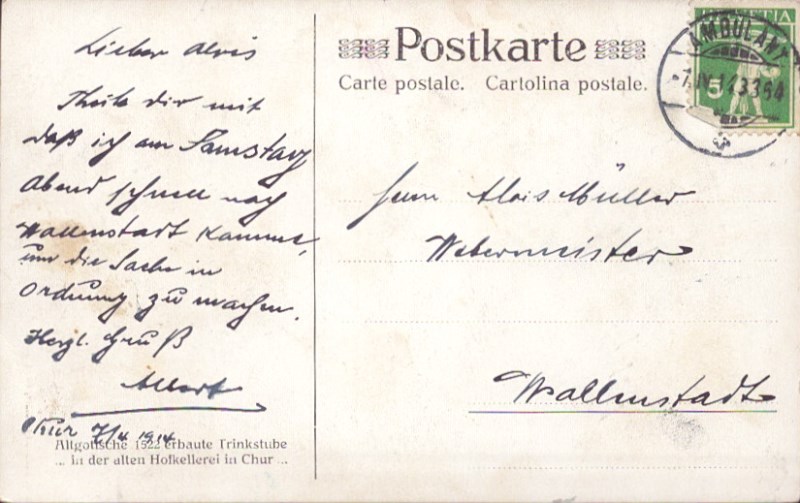 Lieber Alois
Theile dir mit
daß ich am Samstag
Abend schnell nach
Wallenstadt komme,
um die Sache in
Ordnung zu machen.
Herzl. Gruß
Albert
Chur 7/4 1914
Altgotische 1522 erbaute Trinkstube
... in der alten Hofkellerei in Chur ...
Postkarte
Carte postale. Cartolina postale.
HELVETIA
5
AMBULANT
7.IV.14
Herrn Alois Müller
Webermeister
Wallenstadt